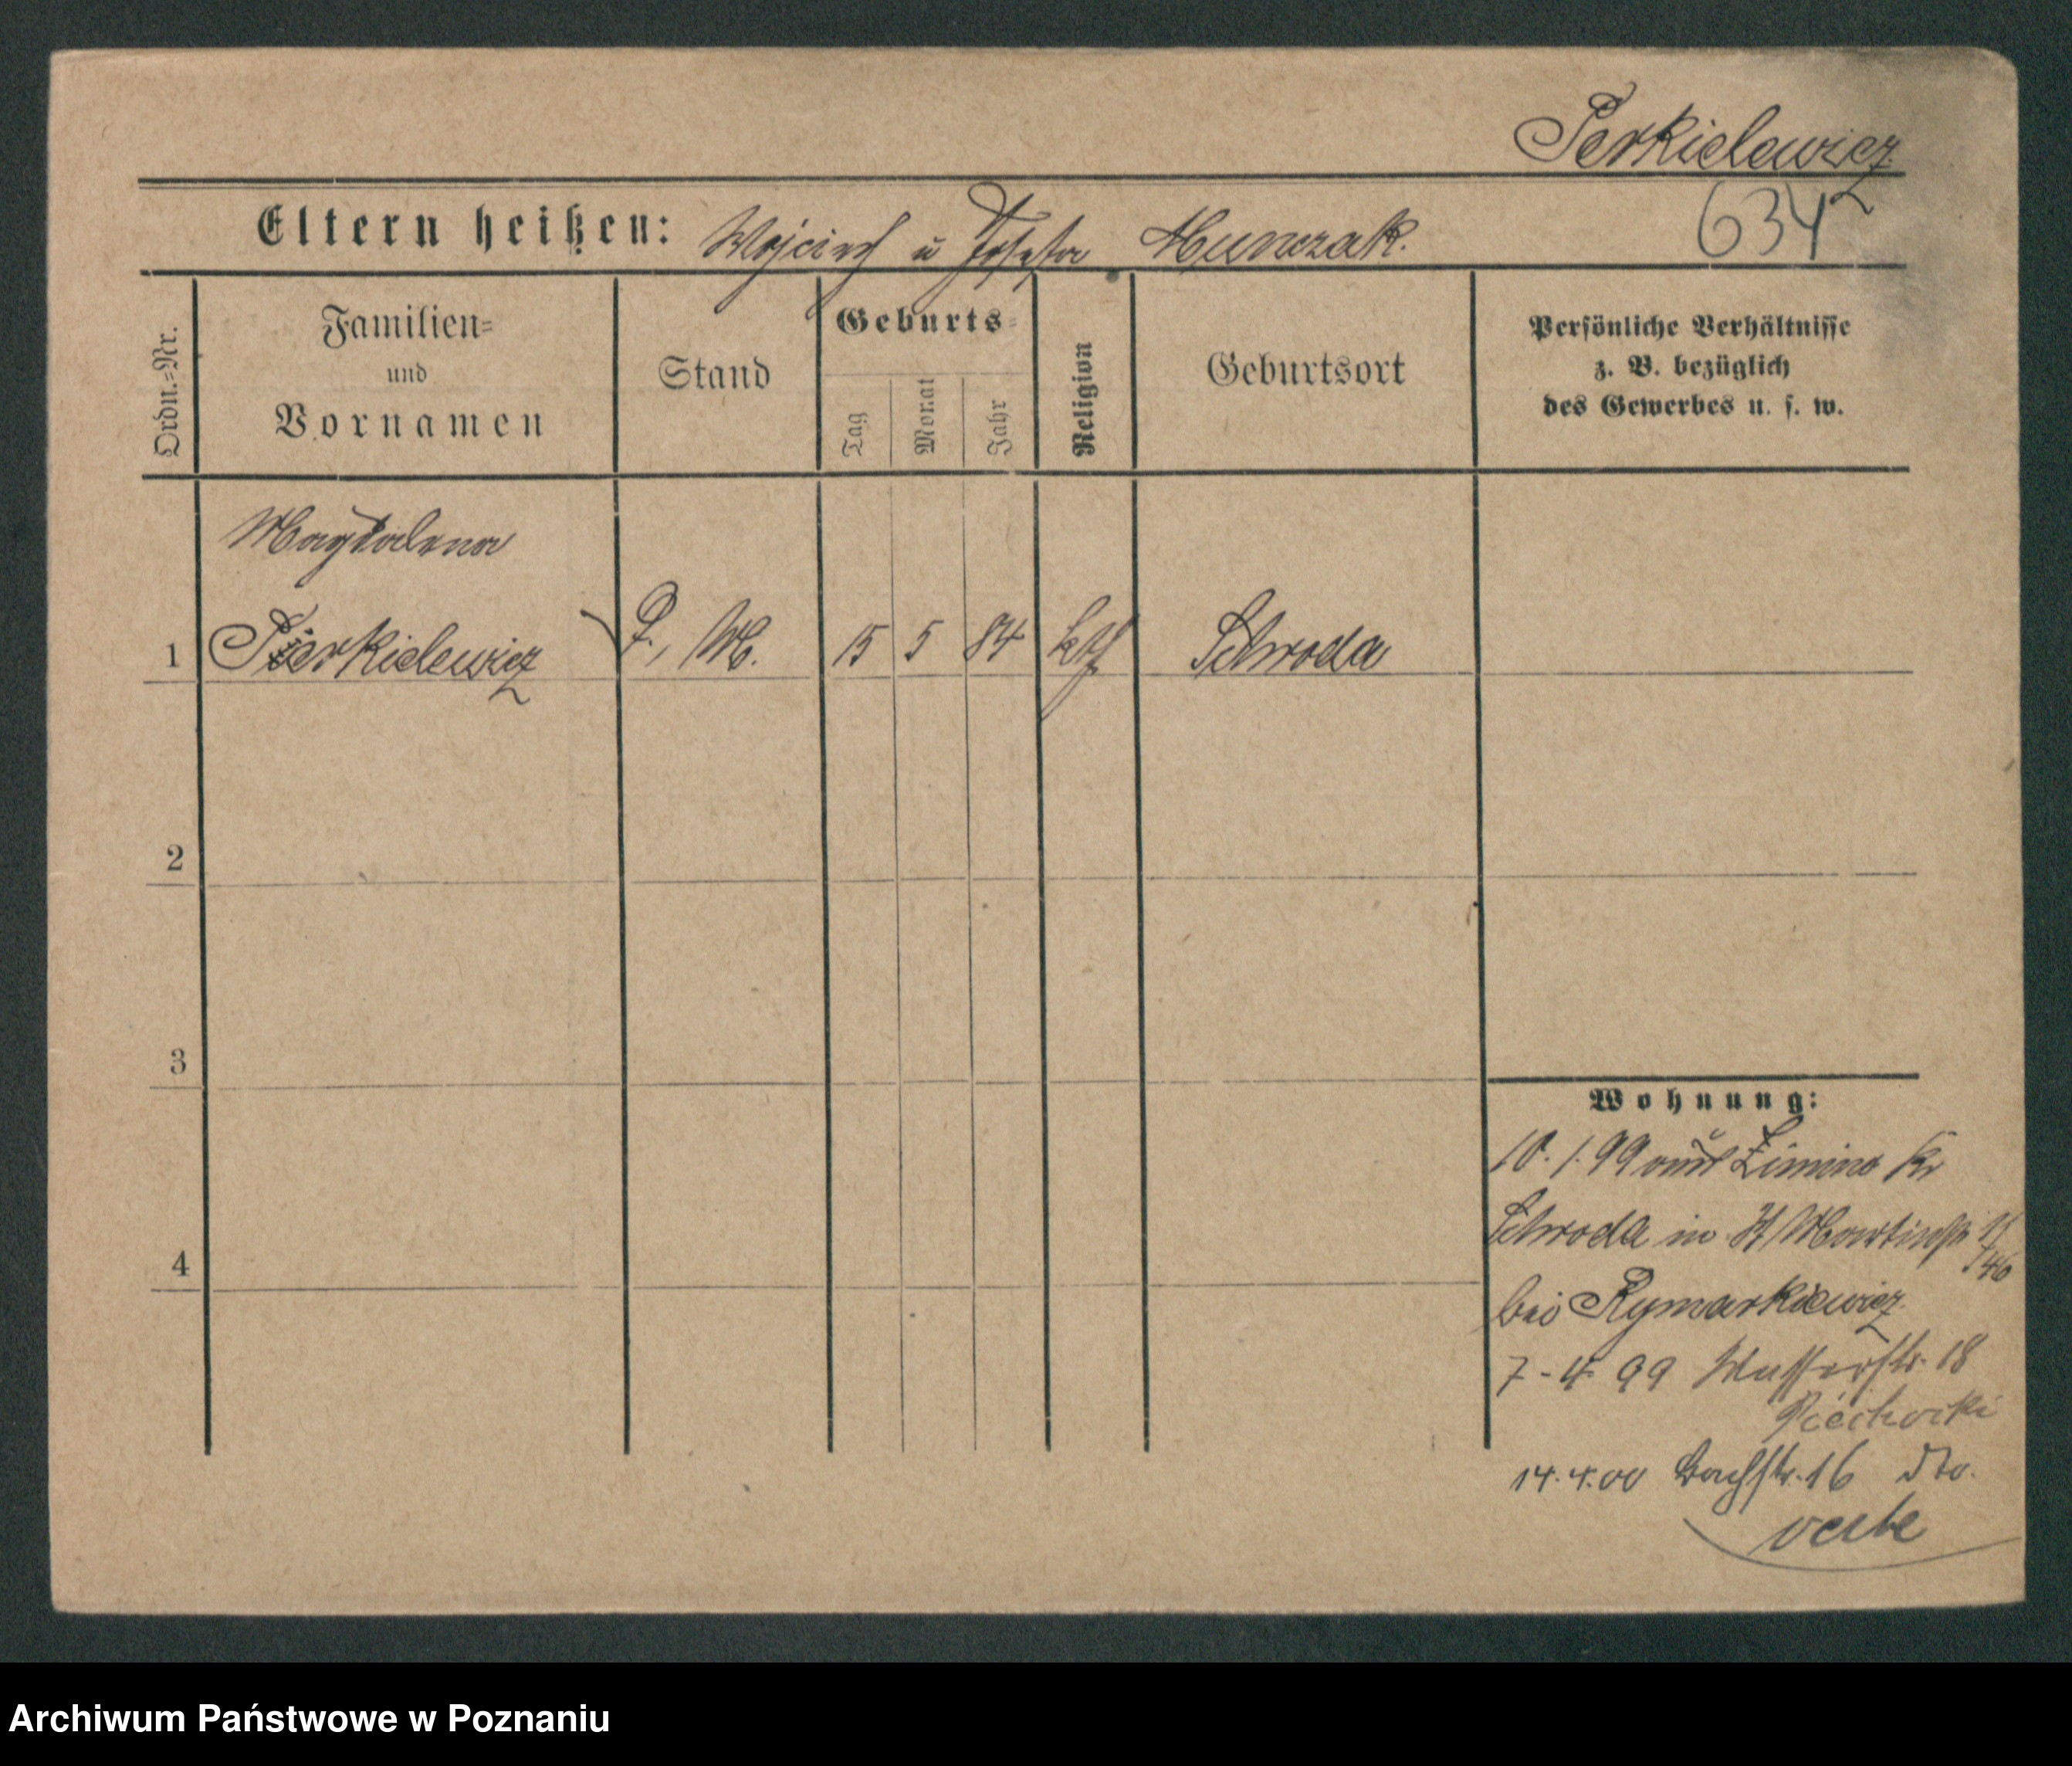 Perkielewicz
634
Eltern heißen: Wojciech u Josefa Munczak.
Ordn.=Nr.
Familien=
und
Vornamen
Stand
Geburts=
Tag
Monat
Jahr
Religion
Geburtsort
Persönliche Verhältnisse
z. B. bezüglich
des Gewerbes u. s. w.
Magdalena
1 Perkielewicz D., M. 15 5 84 kth Schroda
2
3
4
Wohnung:
10. 1. 99 aus Zimino Kr
Schroda in St Martinstr
46
bei Rymarkiewicz
7-4 99 Wasserstr. 18
Piechocki
14.4.00 Bachstr. 16 dto.
Archiwum Państwowe w Poznaniu